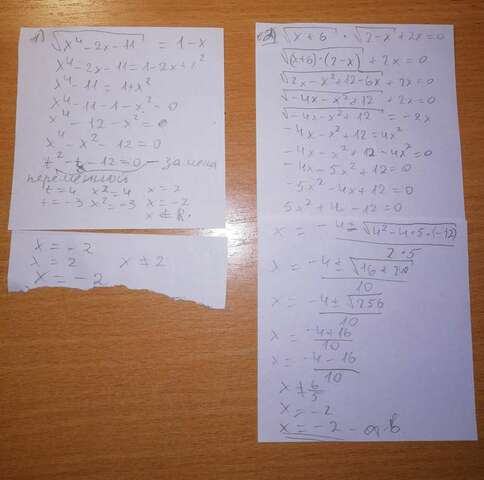 1) √x⁴-2x-11 = 1-x
x⁴-2x-11=1-2x+x²
x⁴-11=1+x²
x⁴-11-1-x²=0
x⁴-12-x²=0
x⁴-x²-12=0
t²-t-12=0 - замена
переменной
t=4 x²=4 x=2
t=-3 x²=-3 x=-2
x∉R.
x=-2
x=2 x≠2
x=-2
2) √x+6 · √2-x +2x=0
√(x+6)·(2-x) +2x=0
√2x-x²+12-6x +2x=0
√-4x-x²+12 +2x=0
√-4x-x²+12 = -2x
-4x-x²+12=4x²
-4x-x²+12-4x²=0
-4x-5x²+12=0
-5x²-4x+12=0
5x²+4x-12=0
x = -4±√4²-4·5·(-12)
2·5
x = -4±√16+240
10
x = -4±√256
10
x = -4+16
10
x = -4-16
10
x≠6/5
x=-2
x=-2 - отв